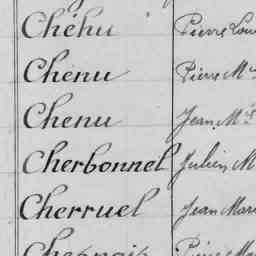 Chéhu Pierre Loui
Chenu Pierre M
Chenu Jean M
Cherbonnel Julien M
Cherruel Jean Mari